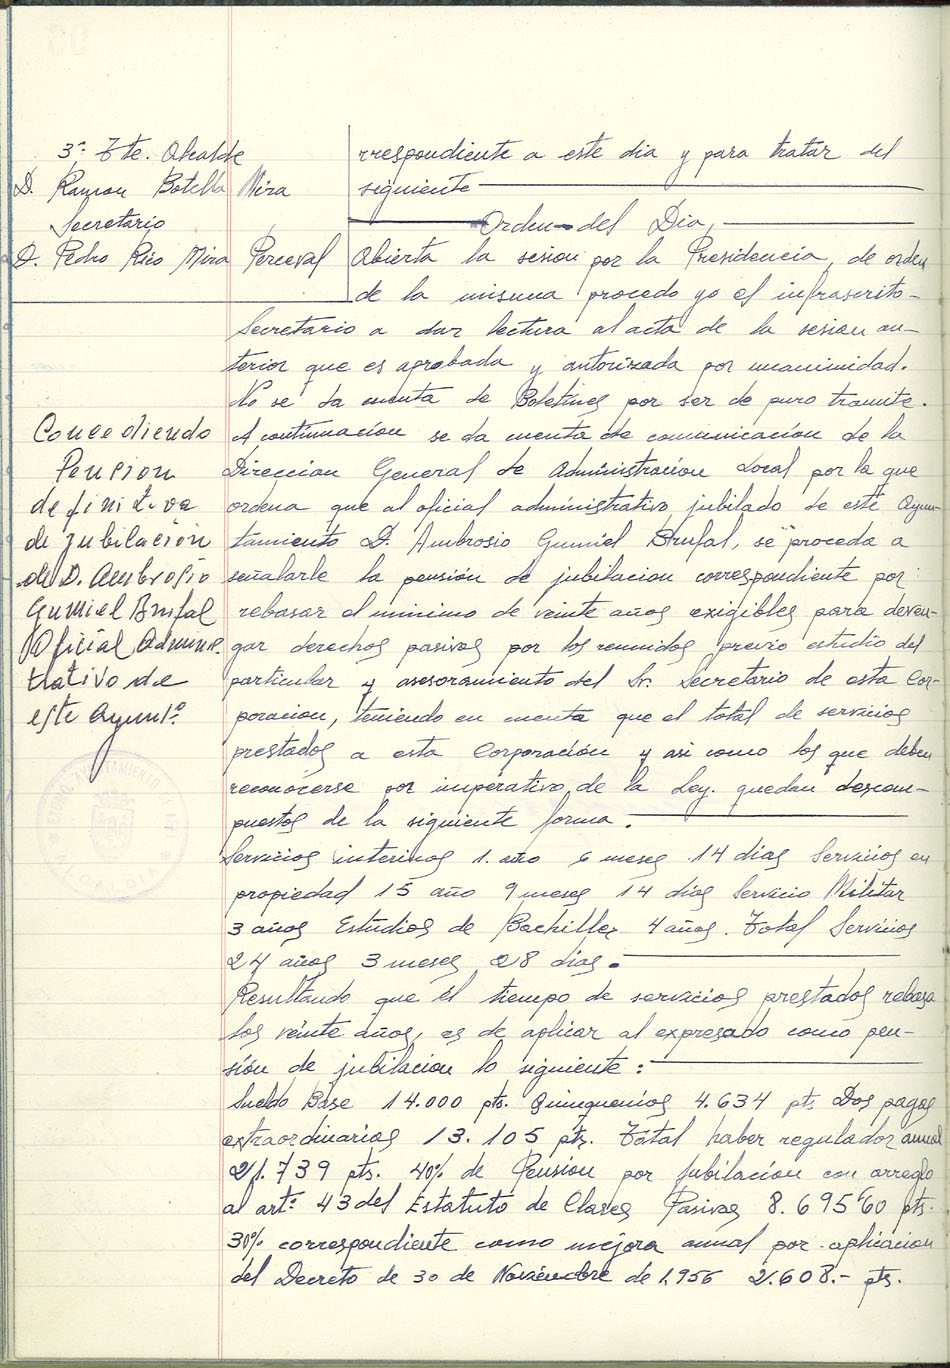 3º Tte. Alcalde
D. Ramon Botella Mira
Secretario
D. Pedro Rico Mira Perceval
rrespondiente a este dia y para tratar del
siguiente
Orden del Dia,
Abierta la sesion por la Presidencia, de orden
de la misma procedo yo el infrascrito
Secretario a dar lectura al acta de la sesion an-
terior que es aprobada y autorizada por unanimidad.
No se da cuenta de Boletines por ser de puro tramite.
Concediendo
Pension
definitiva
de jubilación
de D. Ambrosio
Gumiel Brufal
Oficial Adminis-
trativo de
este Ayuntº
A continuación se da cuenta de comunicación de la
Direccion General de Administración Local por la que
ordena que al oficial administrativo, jubilado de este Ayun-
tamiento D. Ambrosio Gumiel Brufal, se proceda a
señalarle la pensión de jubilacion correspondiente por
rebasar el minimo de veinte años exigibles para deven-
gar derechos pasivos por los reunidos previo estudio del
particular y asesoramiento del Sr. Secretario de esta Cor-
poracion, teniendo en cuenta que el total de servicios
prestados a esta Corporación y asi como los que deben
reconocerse por imperativo de la Ley. quedan descom-
puestos de la siguiente forma:
Servicios interinos 1. año 6 meses 14 dias Servicios en
propiedad 15 año 9 meses 14 dias Servicio Militar
3 años Estudios de Bachiller 4 años. Total Servicios
24 años 3 meses 28 dias.
Resultando que el tiempo de servicios prestados rebasa
los veinte años, es de aplicar al expresado como pen-
sión de jubilacion lo siguiente:
Sueldo Base 14.000 pts. Quinquenios 4.634 pts Dos pagas
extraordinarias 13.105 pts. Total haber regulador anual
21.739 pts. 40% de Pension por Jubilación con arreglo
al artº 43 del Estatuto de Clases Pasivas 8.695'60 pts.
30% correspondiente como mejora anual por aplicacion
del Decreto de 30 de Noviembre de 1.956 2.608.- pts.